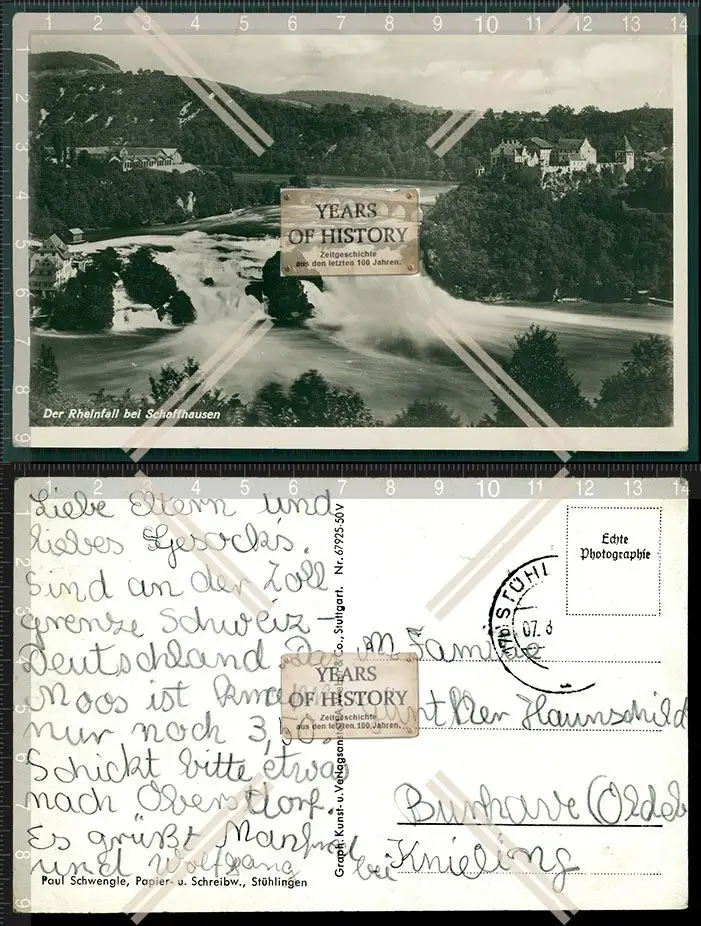 YEARS
OF HISTORY
Zeitgeschichte
aus den letzten 100 Jahren.
Der Rheinfall bei Schaffhausen
Liebe Eltern und
liebes Gesocks.
Sind an der Zoll
grenze Schweiz-
Deutschland.
Moos ist
nur noch 3,50.
Schickt bitte etwas
nach Oberstdorf.
Es grüßt Manfred
und Wolfgang
Paul Schwengle, Papier- u. Schreibw., Stühlingen
Graph. Kunst- u. Verlagsanst. & Co., Stuttgart. Nr. 67925-50V
YEARS
OF HISTORY
Zeitgeschichte
aus den letzten 100 Jahren.
Echte
Photographie
STÜHL
07.8
Familie
Haunschild
Burhave (Oldeb
bei Knieling